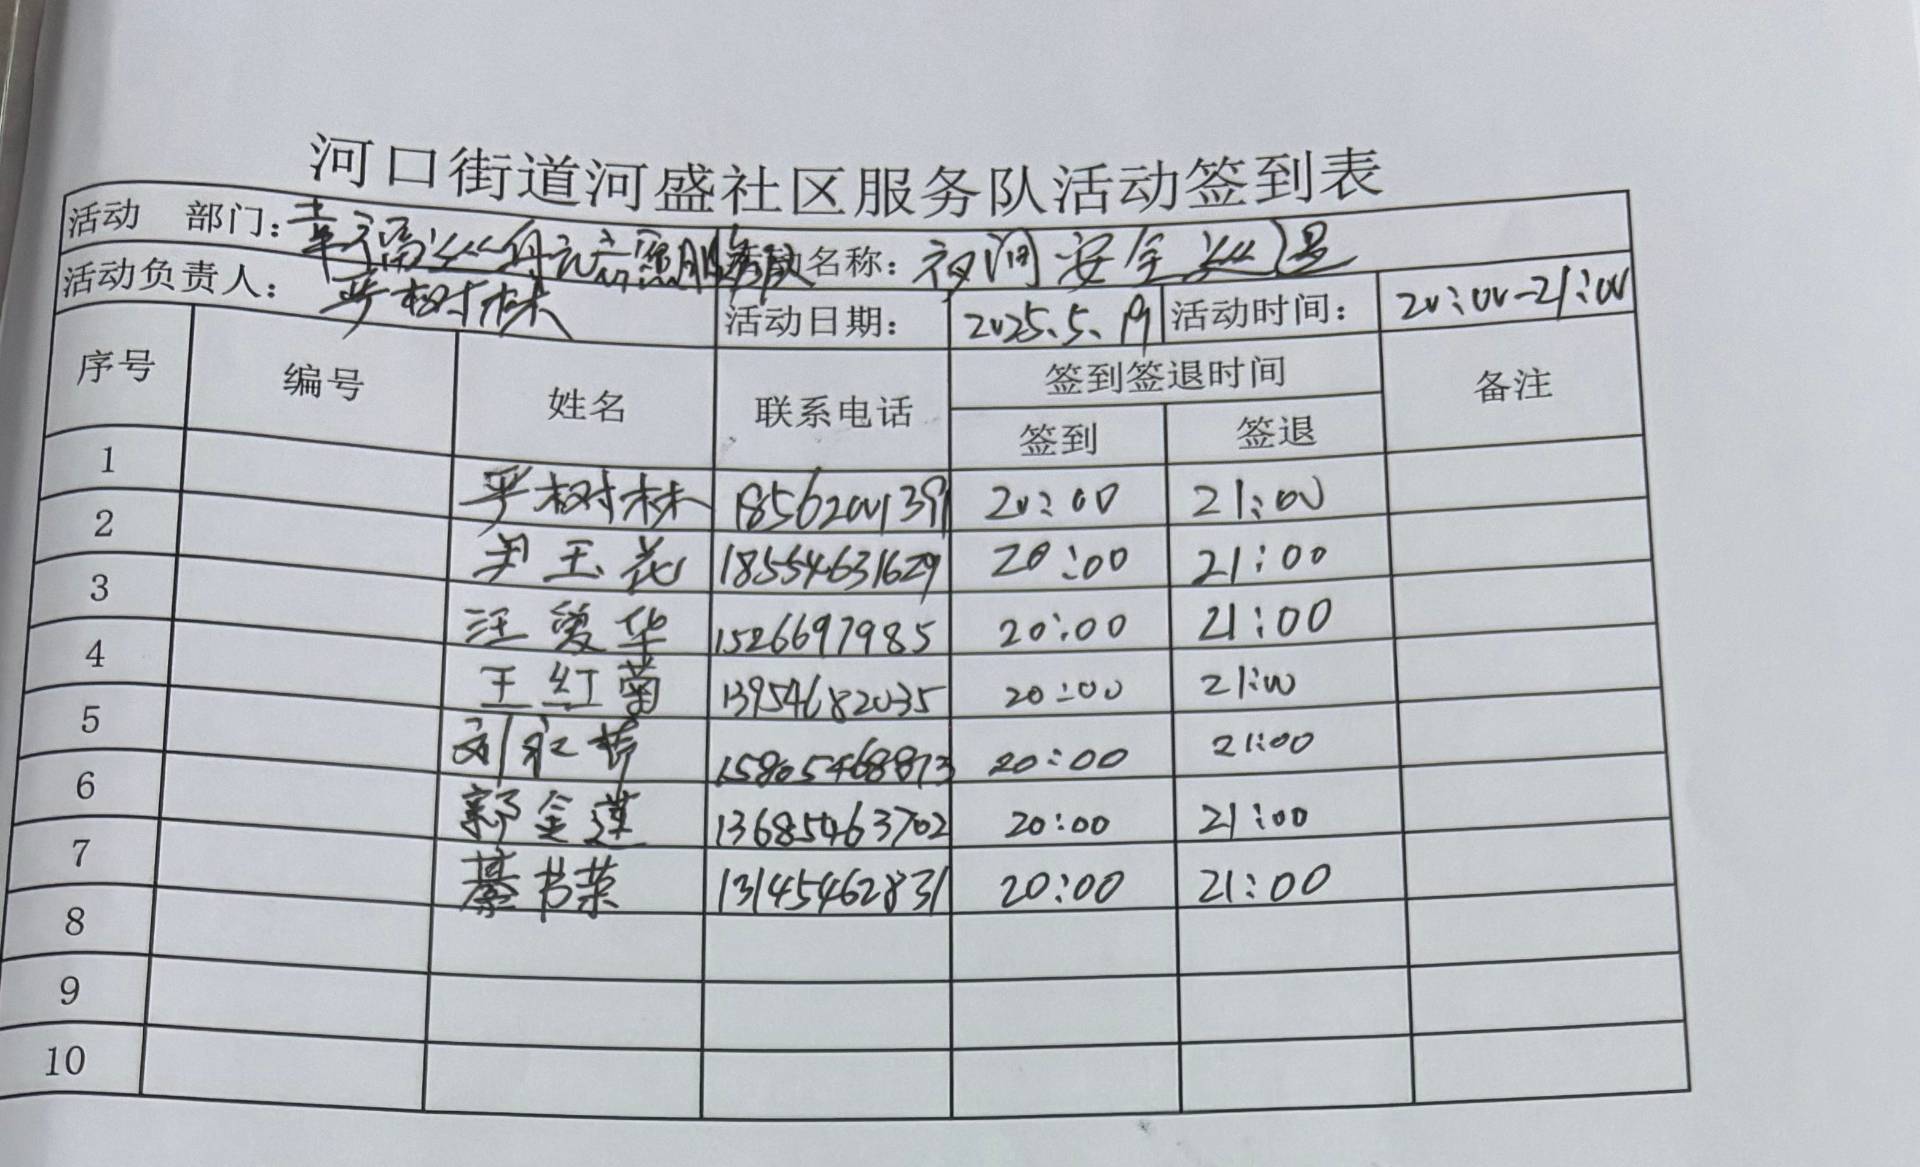 河口街道河盛社区服务队活动签到表
活动 部门： 幸福 志愿服务队 活动名称： 夜间安全巡逻
活动负责人： 严树林 活动日期： 2025.5.19 活动时间： 20:00-21:00
序号 编号 姓名 联系电话 签到签退时间 备注
签到 签退
1 严树林 18562001391 20:00 21:00
2 尹玉花 18554631629 20:00 21:00
3 汪爱华 1526697985 20:00 21:00
4 王红菊 13954682035 20:00 21:00
5 刘 15805468873 20:00 21:00
6 郭金莲 13685463702 20:00 21:00
7 綦书荣 13145462831 20:00 21:00
8
9
10